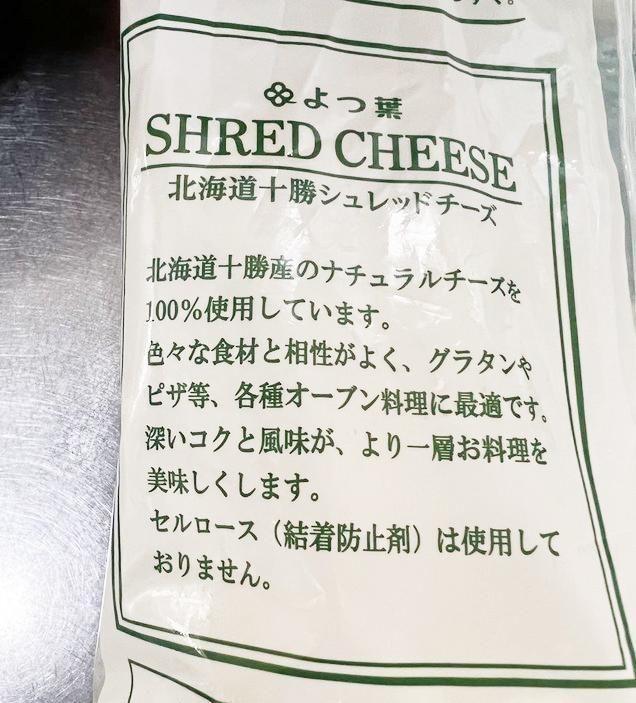 よつ葉
SHRED CHEESE
北海道十勝シュレッドチーズ
北海道十勝産のナチュラルチーズを
100%使用しています。
色々な食材と相性がよく、グラタンや
ピザ等、各種オーブン料理に最適です。
深いコクと風味が、より一層お料理を
美味しくします。
セルロース（結着防止剤）は使用して
おりません。